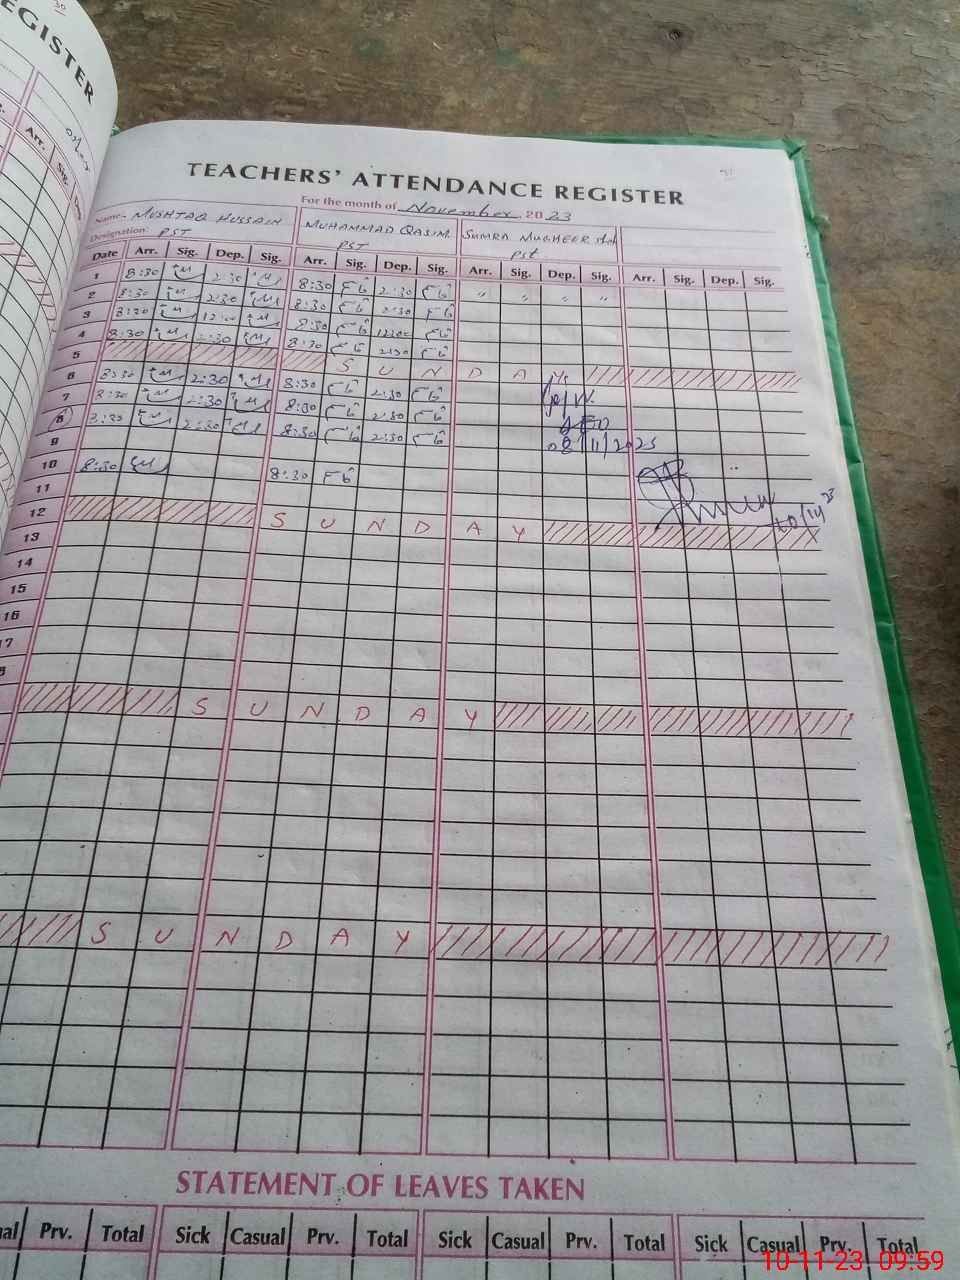 EGISTER
TEACHERS' ATTENDANCE REGISTER
For the month of November 2023
Name. MUSHTAQ HUSSAIN MUHAMMAD QASIM SUMRA MUGHEER
Designation: PST PST PST
Date Arr. Sig. Dep. Sig. Arr. Sig. Dep. Sig. Arr. Sig. Dep. Sig. Arr. Sig. Dep. Sig.
1 8:30 2:30 8:30 2:30 " " " "
2 8:30 2:30 8:30 2:30
3 8:30 12:00 8:30 12:00
4 8:30 2:30 8:30 2:30
5 SUNDAY
6 8:30 2:30 8:30 2:30
7 8:30 2:30 8:30 2:30
8 8:30 2:30 8:30 2:30
08/11/2023
9
10 8:30 8:30
11
12 SUNDAY
13
14
15
16
17
SUNDAY
SUNDAY
STATEMENT OF LEAVES TAKEN
Prv. Total Sick Casual Prv. Total Sick Casual Prv. Total Sick Casual Prv. Total
10-11-23 09:59